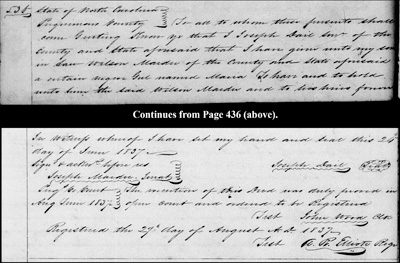 State of North Carolina
Perquimons County To all to whom these presents shall
come Greeting Know ye that I Joseph Dail Senr of the
County and State aforesaid that I have given unto my son
in Law Wilson Marder of the County and State aforesaid
a certain negro Gal named Maria To have and to hold
unto him the said Wilson Marder and to his heirs forever
Continues from Page 436 (above).
In Witness whereof I have set my hand and seal this 24th
day of June 1837
Sign & acknd before us Joseph Dail Seal
Joseph Marder, Jurat
Court The execution of this Deed was duly proved in
Aug Term 1837 open court and ordered to be Registered
Test John Wood Clk
Registered the 29th day of August A.D. 1837
Test Regr